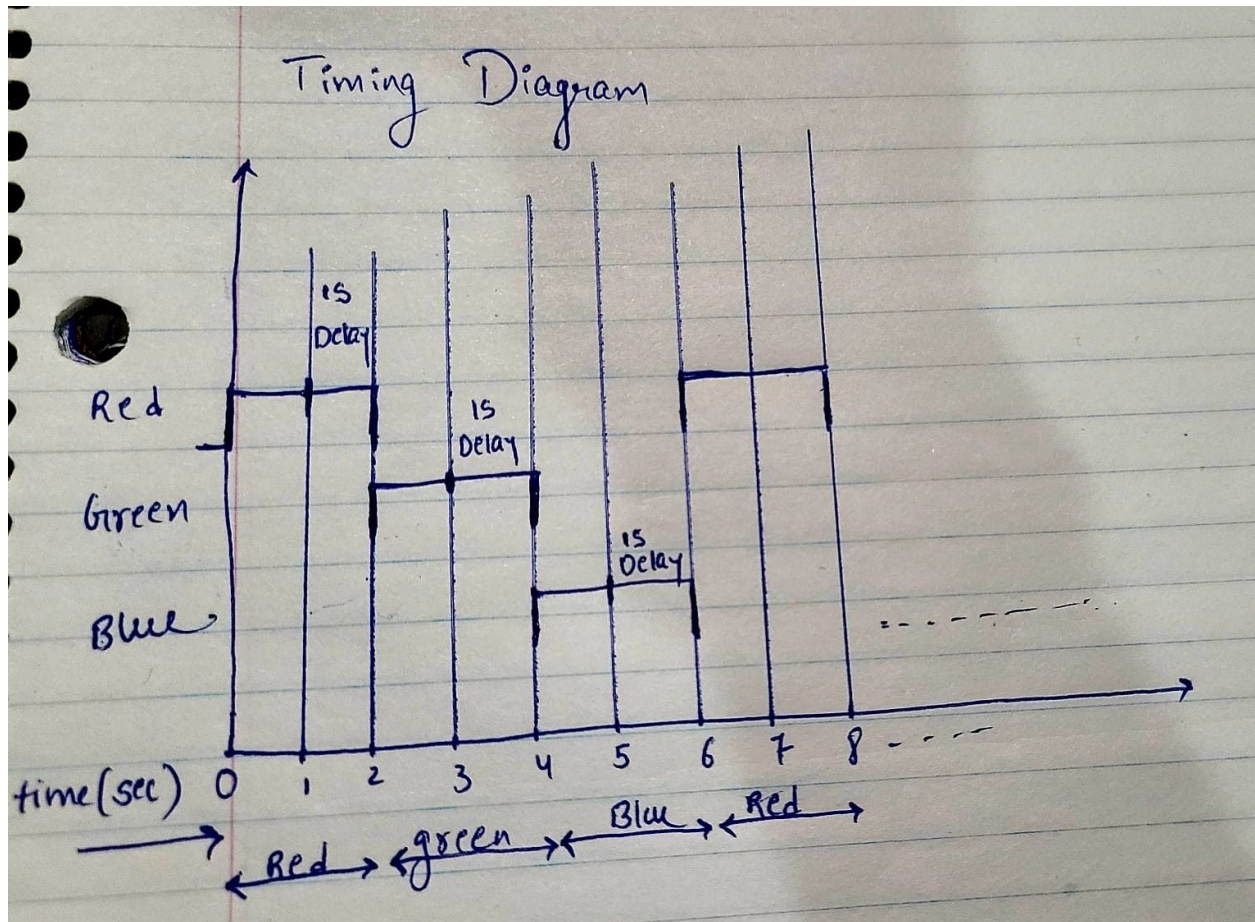 Timing Diagram
1S
Delay
1S
Delay
1S
Delay
Red
Green
Blue
time(sec) 0 1 2 3 4 5 6 7 8
Red green Blue Red